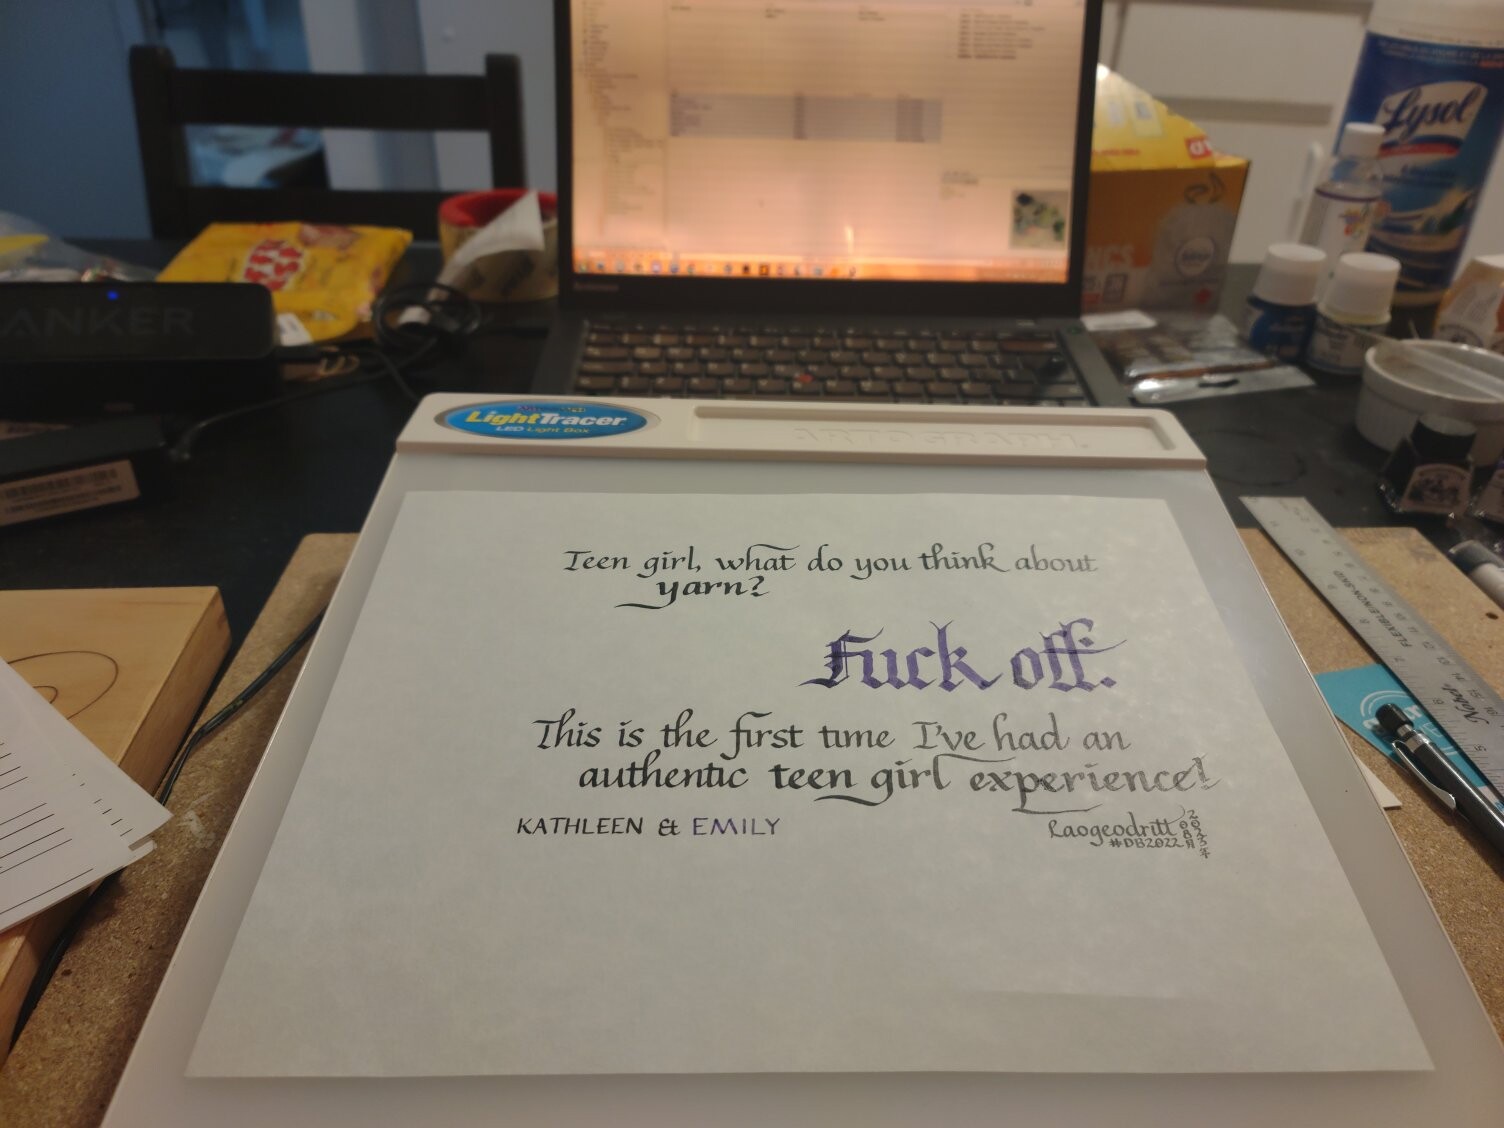 Lysol
ANKER
LightTracer
LED Light Box
ARTOGRAPH
Teen girl, what do you think about
yarn?
Fuck off.
This is the first time I've had an
authentic teen girl experience!
KATHLEEN & EMILY
Laogeodritt
#DB2022
FLEXIBLE/NON-SKID